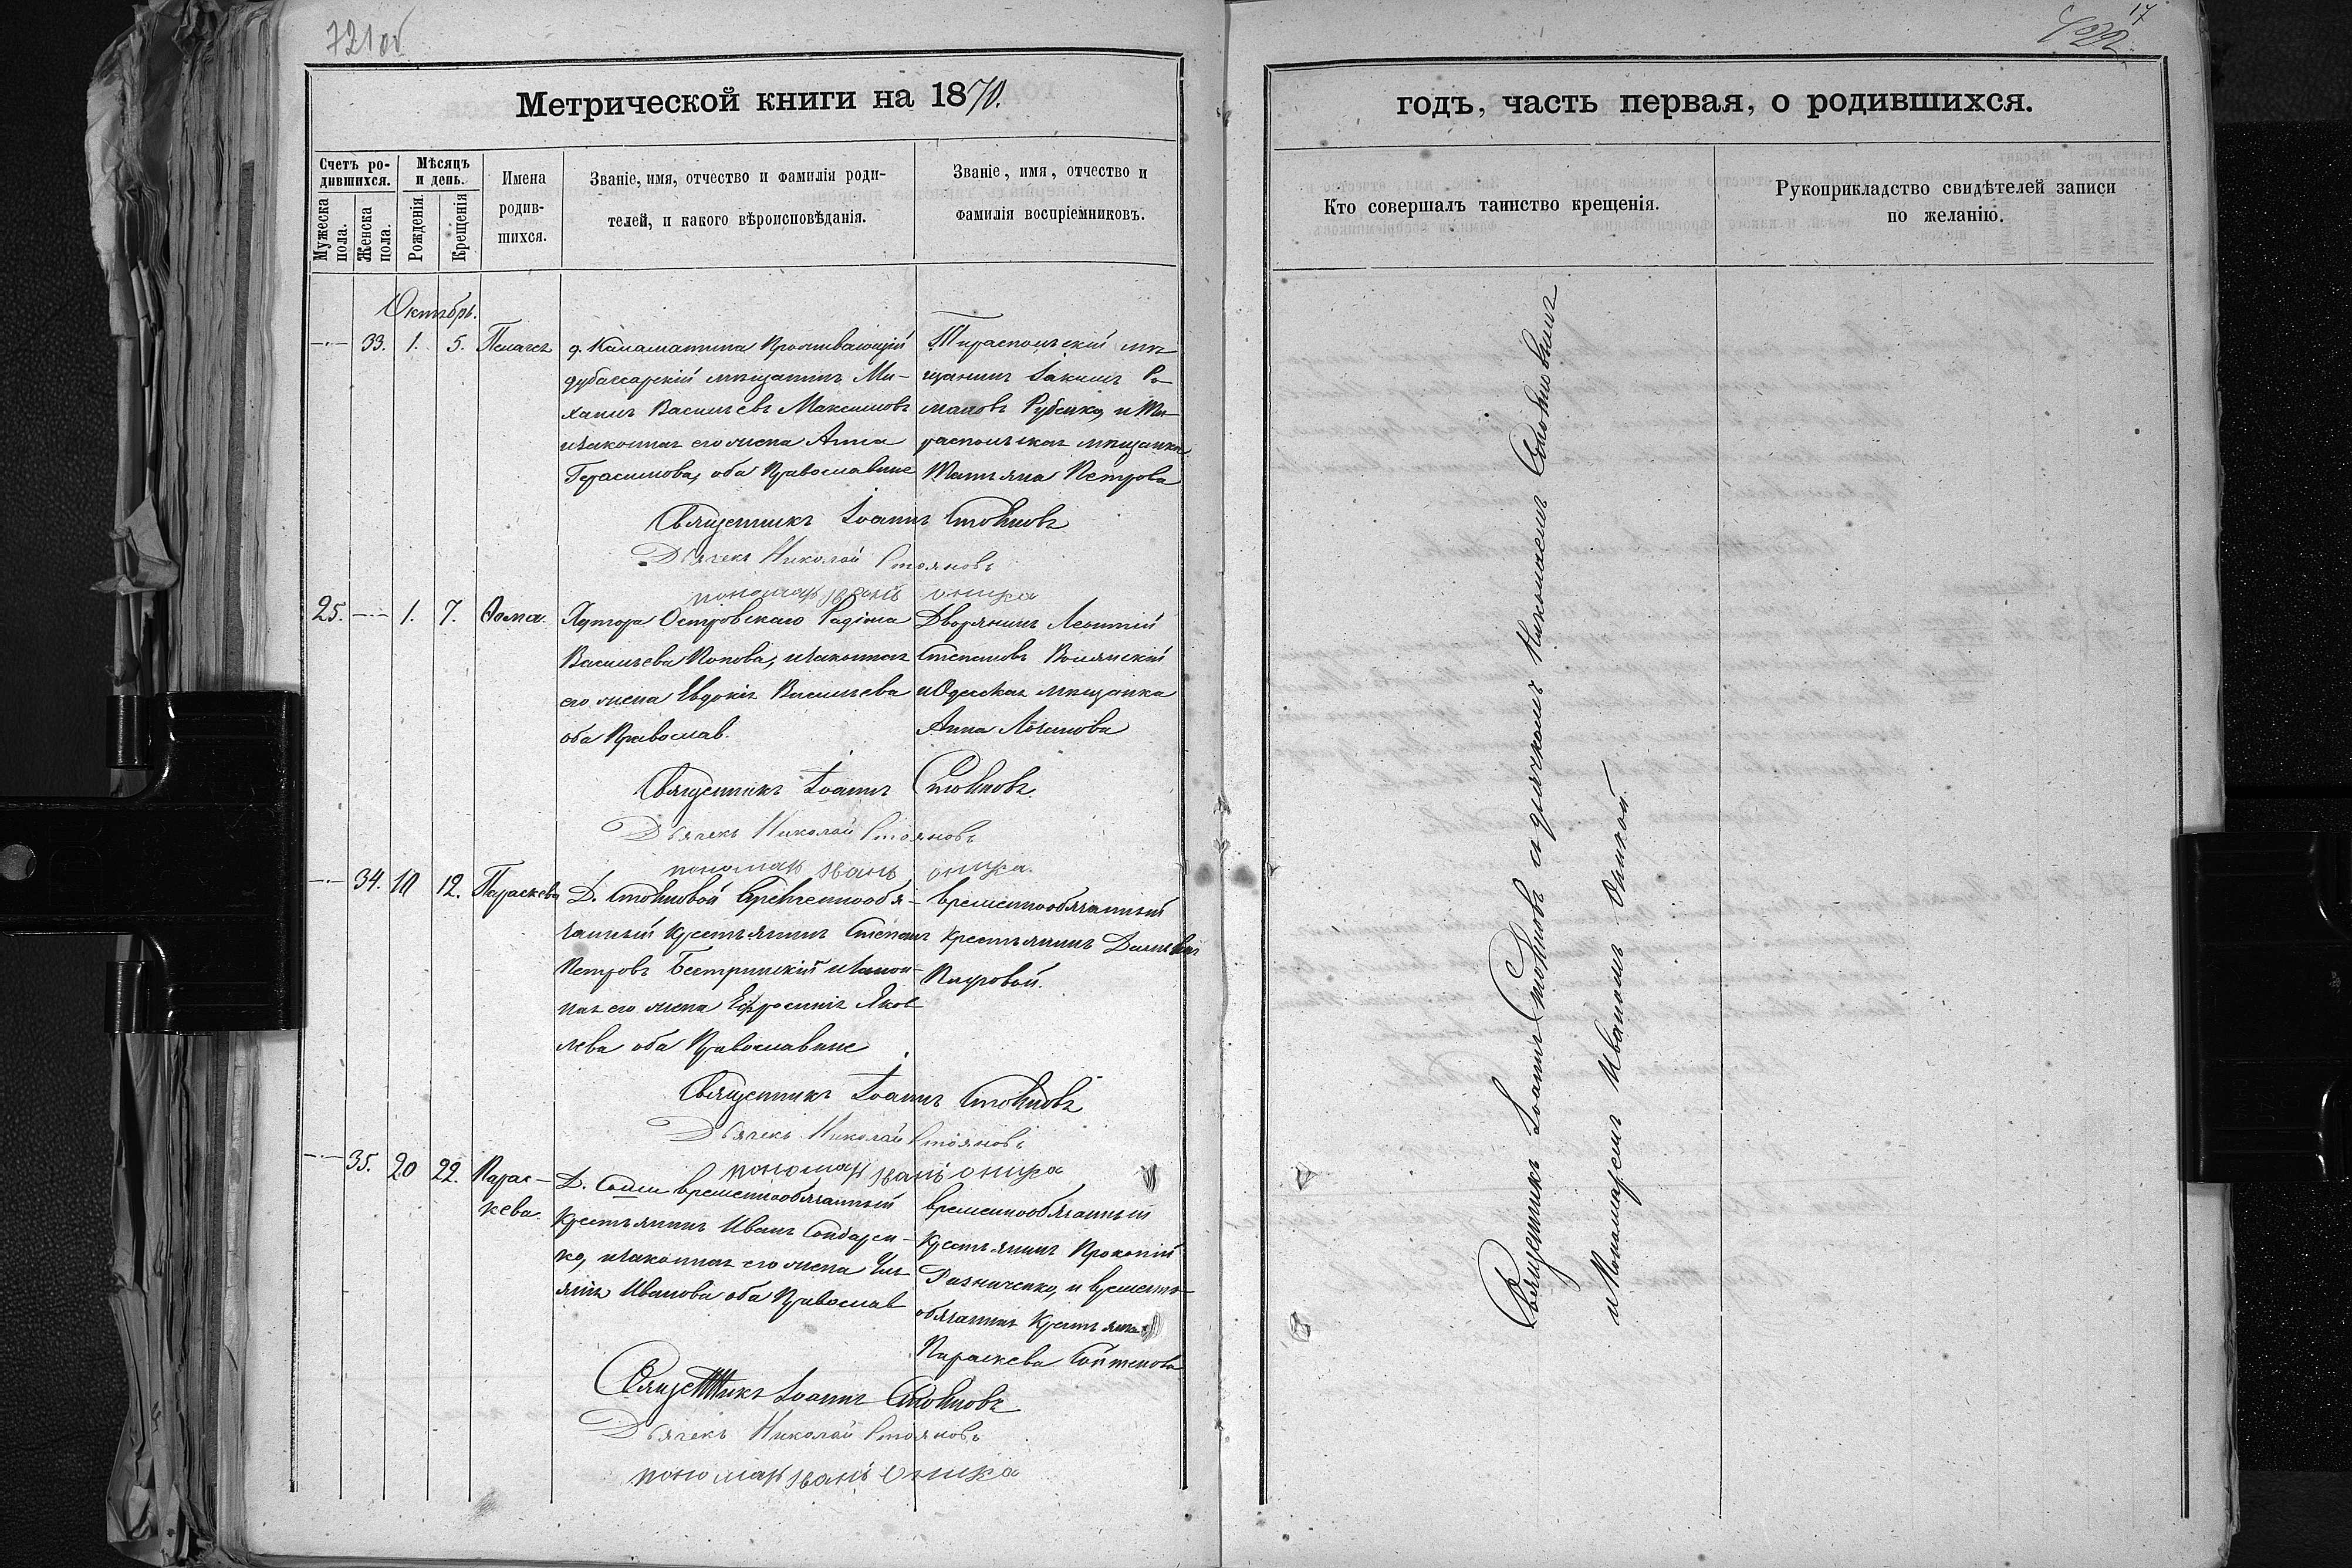 721 об
Метрической книги на 1870.
Счетъ родившихся.
Мужеска пола.
Женска пола.
Мѣсяцъ и день.
Рожденія.
Крещенія
Имена
родив-
шихся.
Званіе, имя, отчество и фамилія роди-
телей, и какого вѣроисповѣданія.
Званіе, имя, отчество и
фамилія воспріемниковъ.
Октябрь.
33. 1. 5. Пелагея
д. Каламатина Проживающій
дубассарскій мещанинъ Ми-
хаилъ Васильевъ Максимовъ
изаконная его жена Анна
Герасимова, оба Православные
Тираспольскій мѣ
щанинъ Іакимъ Ро
мановъ Рубенко, и Ти-
распольская мѣщанка
Татьяна Петрова
Священникъ Іоаннъ Стояновъ
Дьячекъ Николай Стояновъ
пономарь Иванъ Оница
25. 1. 7. Ѳома.
Хутора Островскаго
Васильева Попова, изаконная
его жена Евдокія Васильева
оба Православ.
Дворянинъ Леонтій
Степановъ Волянскій
и Одесская мѣщанка
Анна
Священникъ Іоаннъ Стояновъ
Дьячекъ Николай Стояновъ
пономарь Иванъ Оница
34. 10 12. Параскева
Д. Стояновой Временнообя-
занный Крестьянинъ Степанъ
Петровъ изакон-
ная его жена Ефросинія Яков
лева оба Православные
Временнообязанный
Крестьянинъ
Священникъ Іоаннъ Стояновъ
Дьячекъ Николай Стояновъ
пономарь Иванъ Оница
35. 20 22. Парас-
кева.
Д. временнообязанный
Крестьянинъ Иванъ Бондарен-
ко, изаконная его жена Уль
янія Иванова оба Православ
временнообязанный
Крестьянинъ Прокопій
и временно-
обязанная Крестьянка
Параскева
Священникъ Іоаннъ Стояновъ
Дьячекъ Николай Стояновъ
пономарь Иванъ Оница
17
722
годъ, часть первая, о родившихся.
Кто совершалъ таинство крещенія.
Рукоприкладство свидѣтелей записи
по желанію.
Священникъ Іоаннъ Стояновъ съ дьячкомъ Николаемъ Стояновымъ
и Пономаремъ Иваномъ Оницой.